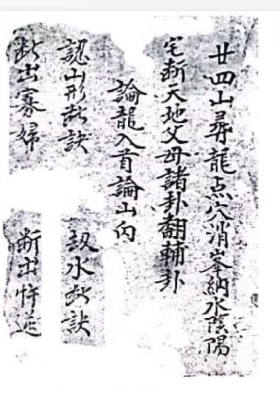 廿四山尋龍点穴消峯納水陰陽
宅断天地父母諸卦翻輔卦
論龍入首論山向
認山形断訣 水断訣
断出寡婦 断出忤逆